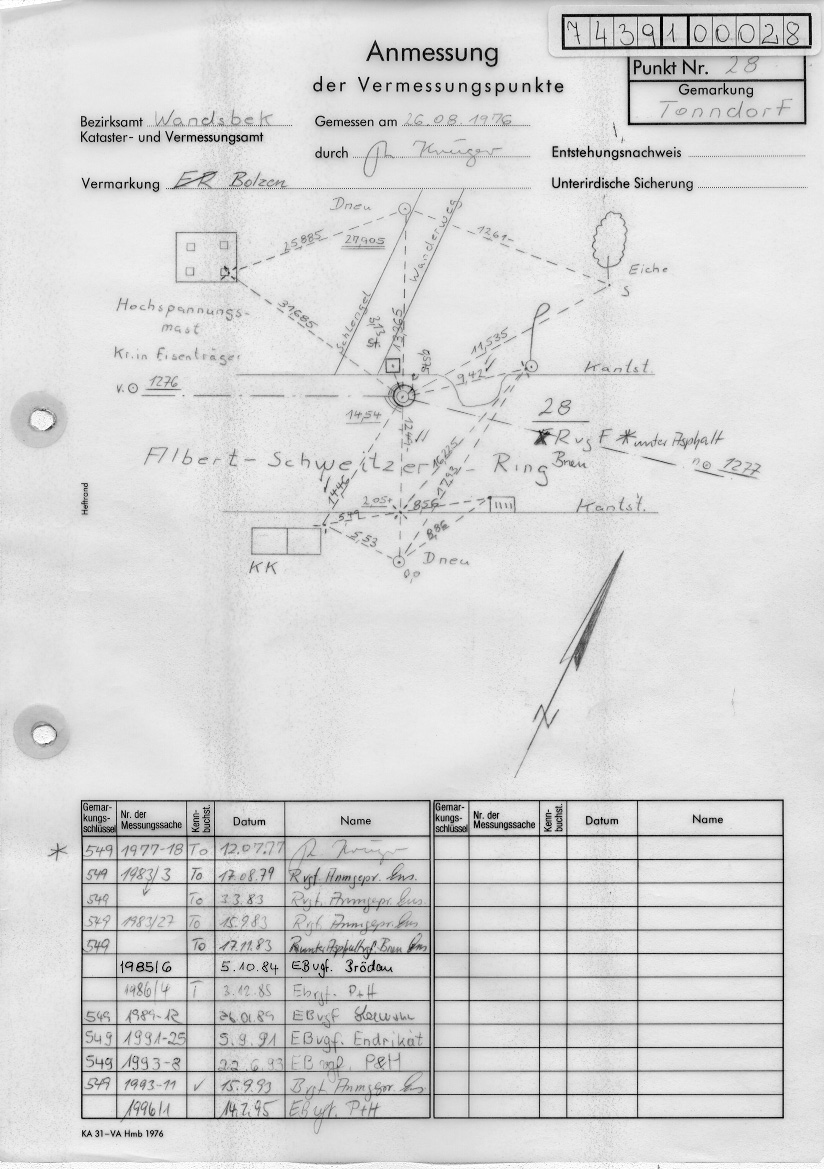 7439100028
Anmessung
der Vermessungspunkte
Punkt Nr. 28
Gemarkung
Tonndorf
Bezirksamt Wandsbek
Kataster- und Vermessungsamt
Gemessen am 26.08.1976
durch Krüger
Entstehungsnachweis
Vermarkung ER Bolzen
Unterirdische Sicherung
Dneu
25,885
27,905
1261
Wanderweg
Eiche
S
Hochspannungs-
mast
31,685
Schlengel
13,365
11,535
Kr. in Eisenträger
9,42
Kantst.
v. 1276
14,54
28
RvgF * unter Asphalt
Bren
1277
Albert-Schweitzer-Ring
16,225
17,92
14,46
2,05
8,56
Kantst.
5,53
8,86
KK
Dneu
0,0
N
Heftrand
Gemar-
kungs-
schlüssel
Nr. der
Messungssache
Kenn-
buchst.
Datum
Name
Gemar-
kungs-
schlüssel
Nr. der
Messungssache
Kenn-
buchst.
Datum
Name
* 549 1977-18 To 12.07.77 Krüger
549 1983/3 To 17.08.79 Rvgf. Anmgepr.
549 To 3.3.83 Rvgf. Anmgepr.
549 1983/27 To 15.9.83 Rvgf. Anmgepr.
549 To 17.11.83 R unter Asphalt vgf. Bren
1985/6 5.10.84 EBvgf. Brödau
1986/4 T 3.12.85 Ebvgf. P+H
549 1989-12 26.01.89 EBvgf
549 1991-25 5.9.91 EBvgf. Endrikat
549 1993-8 22.6.93 EB vgf. P&H
549 1993-11 15.9.93 Bvgf. Anmgepr
1996/1 14.2.95 EB vgf. P+H
KA 31-VA Hmb 1976